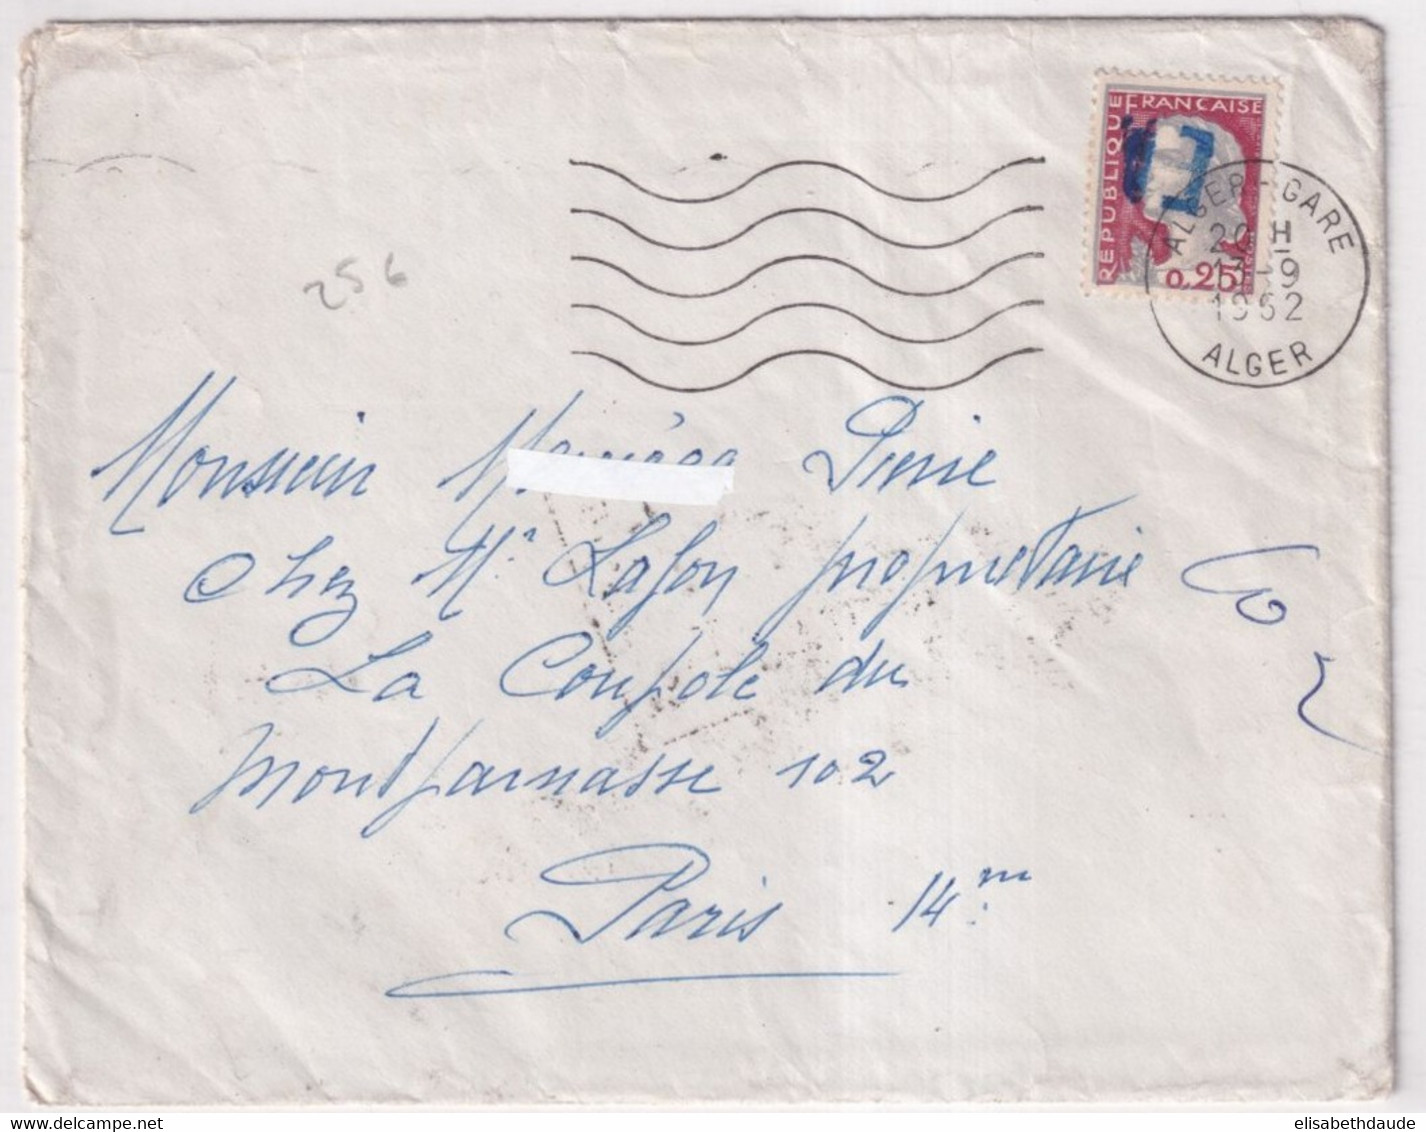 REPUBLIQUE FRANÇAISE
0,25
ALGER-GARE
20 H
13-9
1962
ALGER
256
Monsieur Pierre
chez Mr Lafon propriétaire
La Coupole du
Montparnasse 102
Paris 14me
elisabethdaude